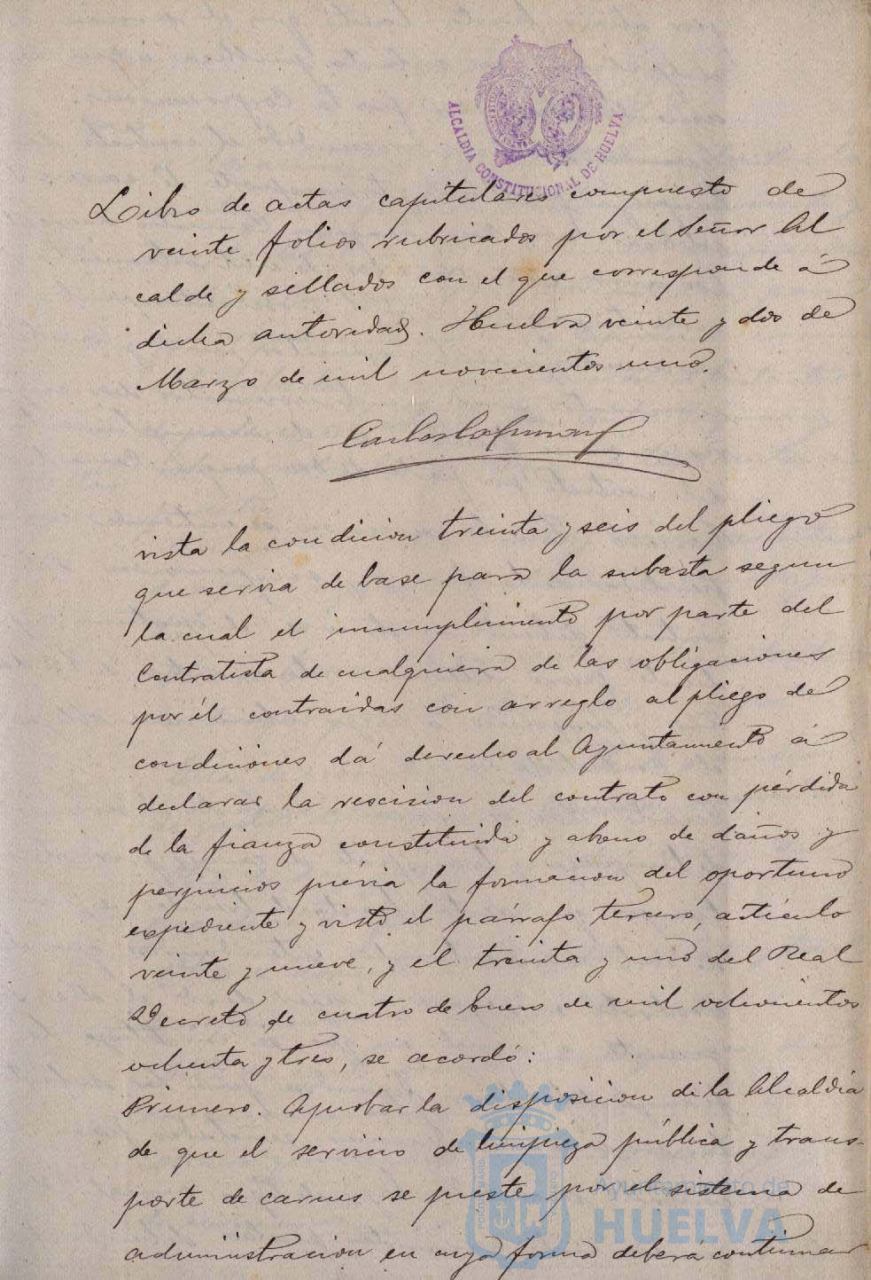 ALCALDIA CONSTITUCIONAL DE HUELVA
Libro de actas capitulares compuesto de
veinte folios rubricados por el Señor Al
calde y sellados con el que corresponde á
dicha autoridad. Huelva veinte y dos de
Marzo de mil novecientos uno.
Carlos
vista la condicion treinta y seis del pliego
que servia de base para la subasta segun
la cual el incumplimiento por parte del
Contratista de cualquiera de las obligaciones
por él contraidas con arreglo al pliego de
condiciones dá derecho al Ayuntamiento á
declarar la rescision del contrato con pérdida
de la fianza constituida y abono de daños y
perjuicios prévia la formacion del oportuno
expediente y visto el párrafo tercero, artículo
veinte y nueve, y el treinta y uno del Real
Decreto de cuatro de Enero de mil ochocientos
ochenta y tres, se acordó:
Primero. Aprobar la disposicion de la Alcaldía
de que el servicio de limpieza pública y trans-
porte de carnes se preste por el sistema de
administracion en cuya forma deberá continuar
Ayuntamiento de
HUELVA